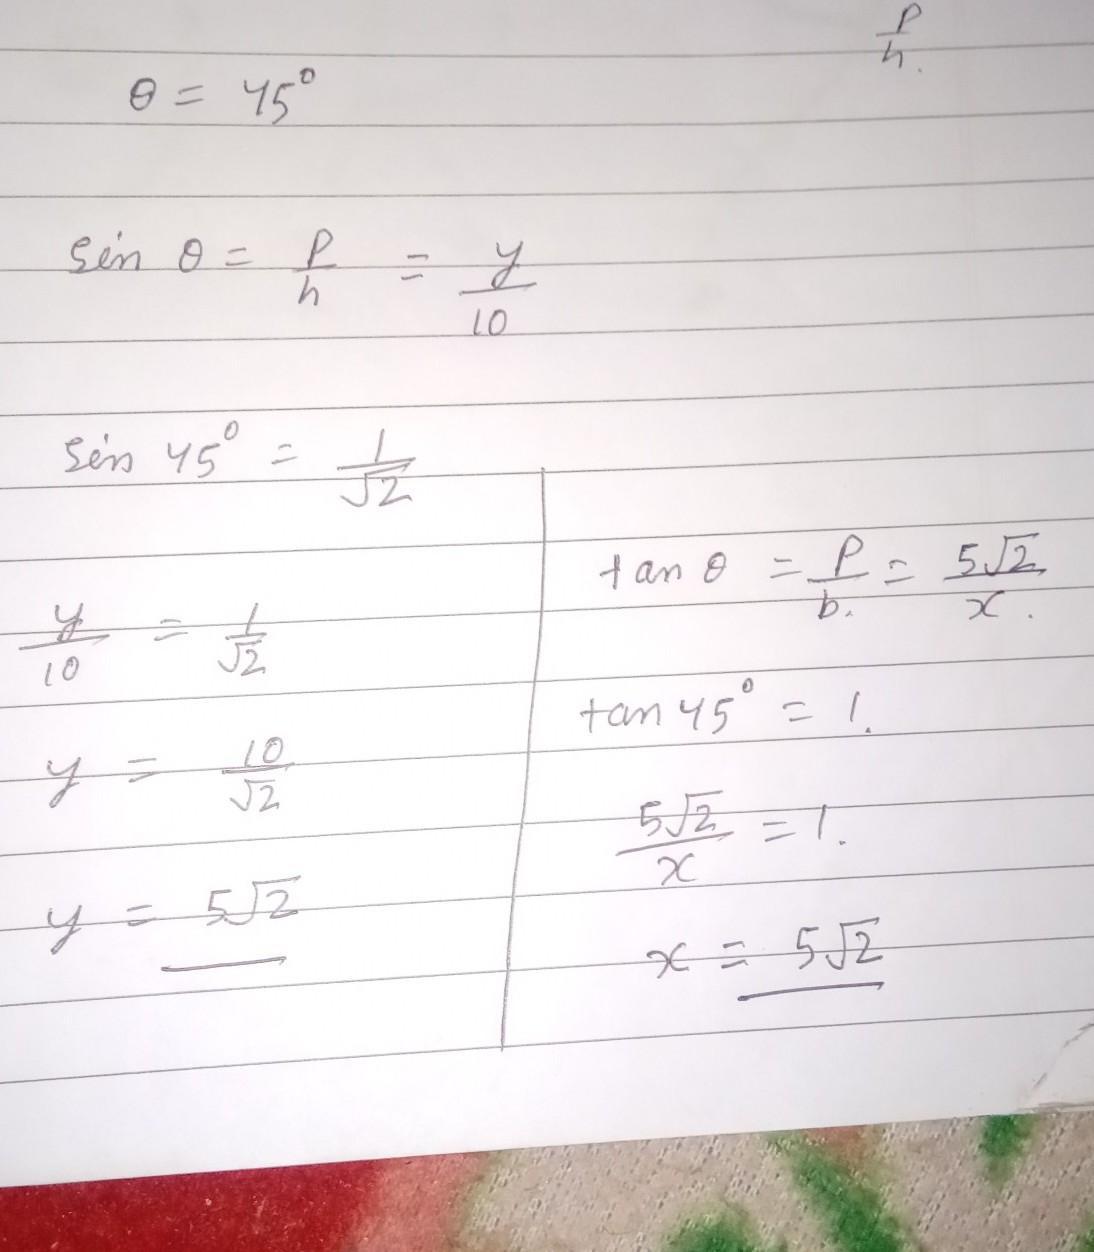 P/h.
θ = 45°
Sin θ = P/h = y/10
Sin 45° = 1/√2
y/10 = 1/√2
y = 10/√2
y = 5√2
tan θ = P/b. = 5√2/x.
tan 45° = 1.
5√2/x = 1.
x = 5√2